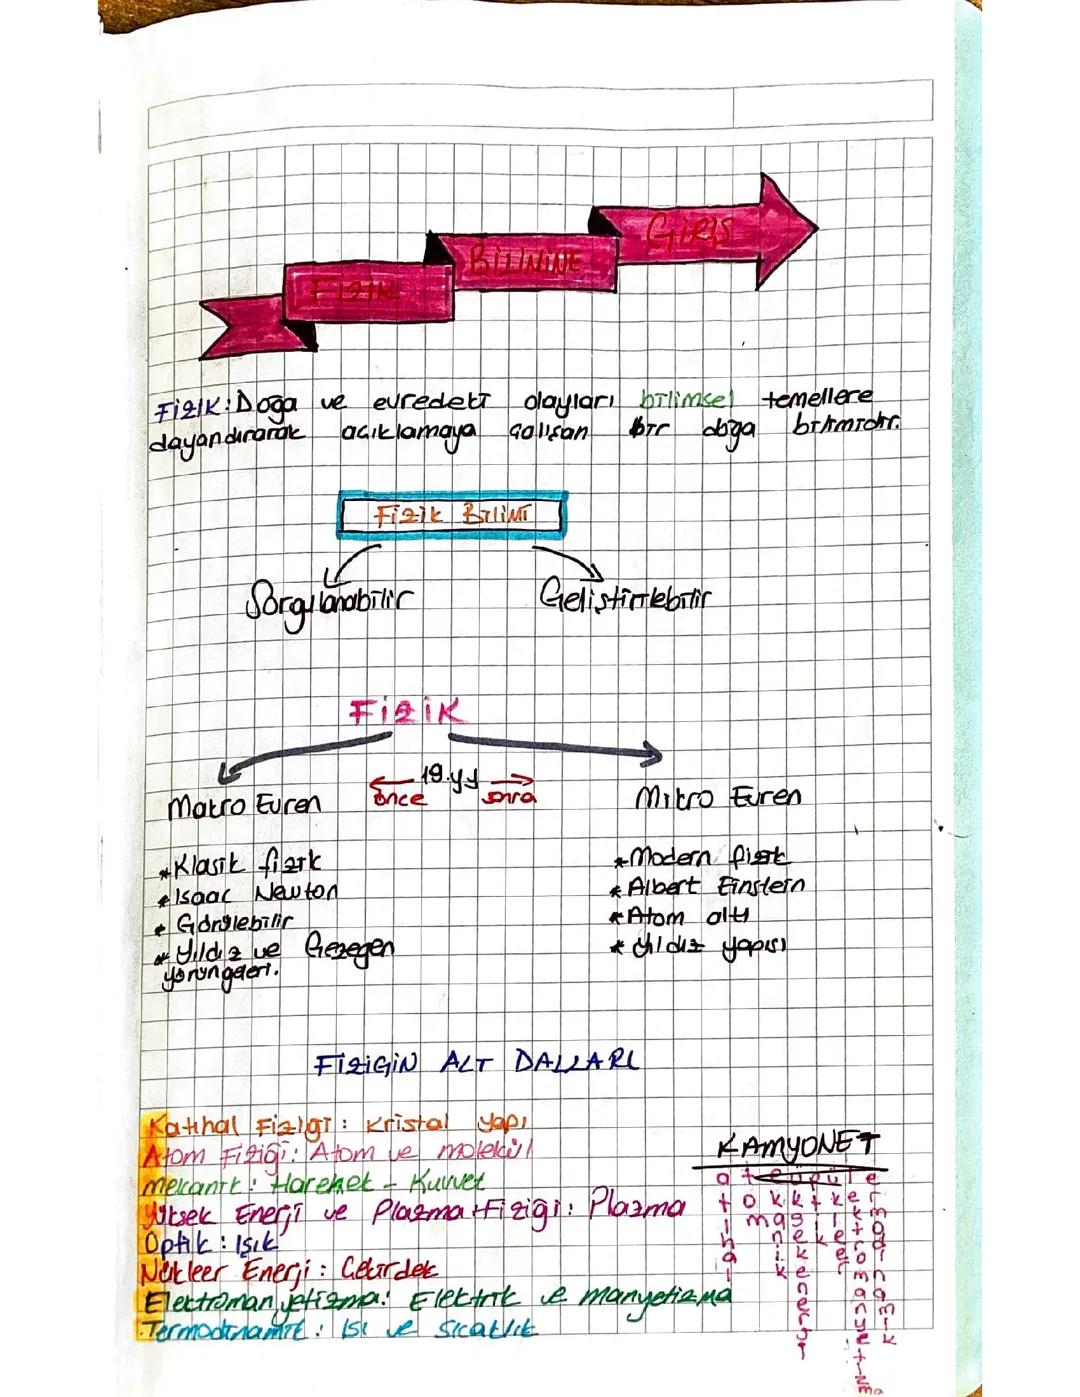 FİZİK
BİLİMİNE
GİRİŞ
FİZİK: Doğa ve evredeki olayları bilimsel temellere
dayandırarak açıklamaya çalışan bir doğa bilimidir.
Fizik Bilimi
Sorgulanabilir
Geliştirilebilir
FİZİK
19.yy
önce
sonra
Makro Evren
Mikro Evren
*Klasik fizik
*Isaac Newton
*Görülebilir
*Yıldız ve Gezegen
yörüngeleri.
*Modern fizik
*Albert Einstein
*Atom altı
*Yıldız yapısı
FİZİĞİN ALT DALLARI
Katıhal Fiziği: Kristal yapı
Atom Fiziği: Atom ve molekül
mekanik: Hareket - Kuvvet
Yüksek Enerji ve Plazma Fiziği: Plazma
Optik: Işık
Nükleer Enerji: Çekirdek
Elektromanyetizma: Elektrik ve manyetizma
Termodinamik: Isı ve Sıcaklık
KAMYONET